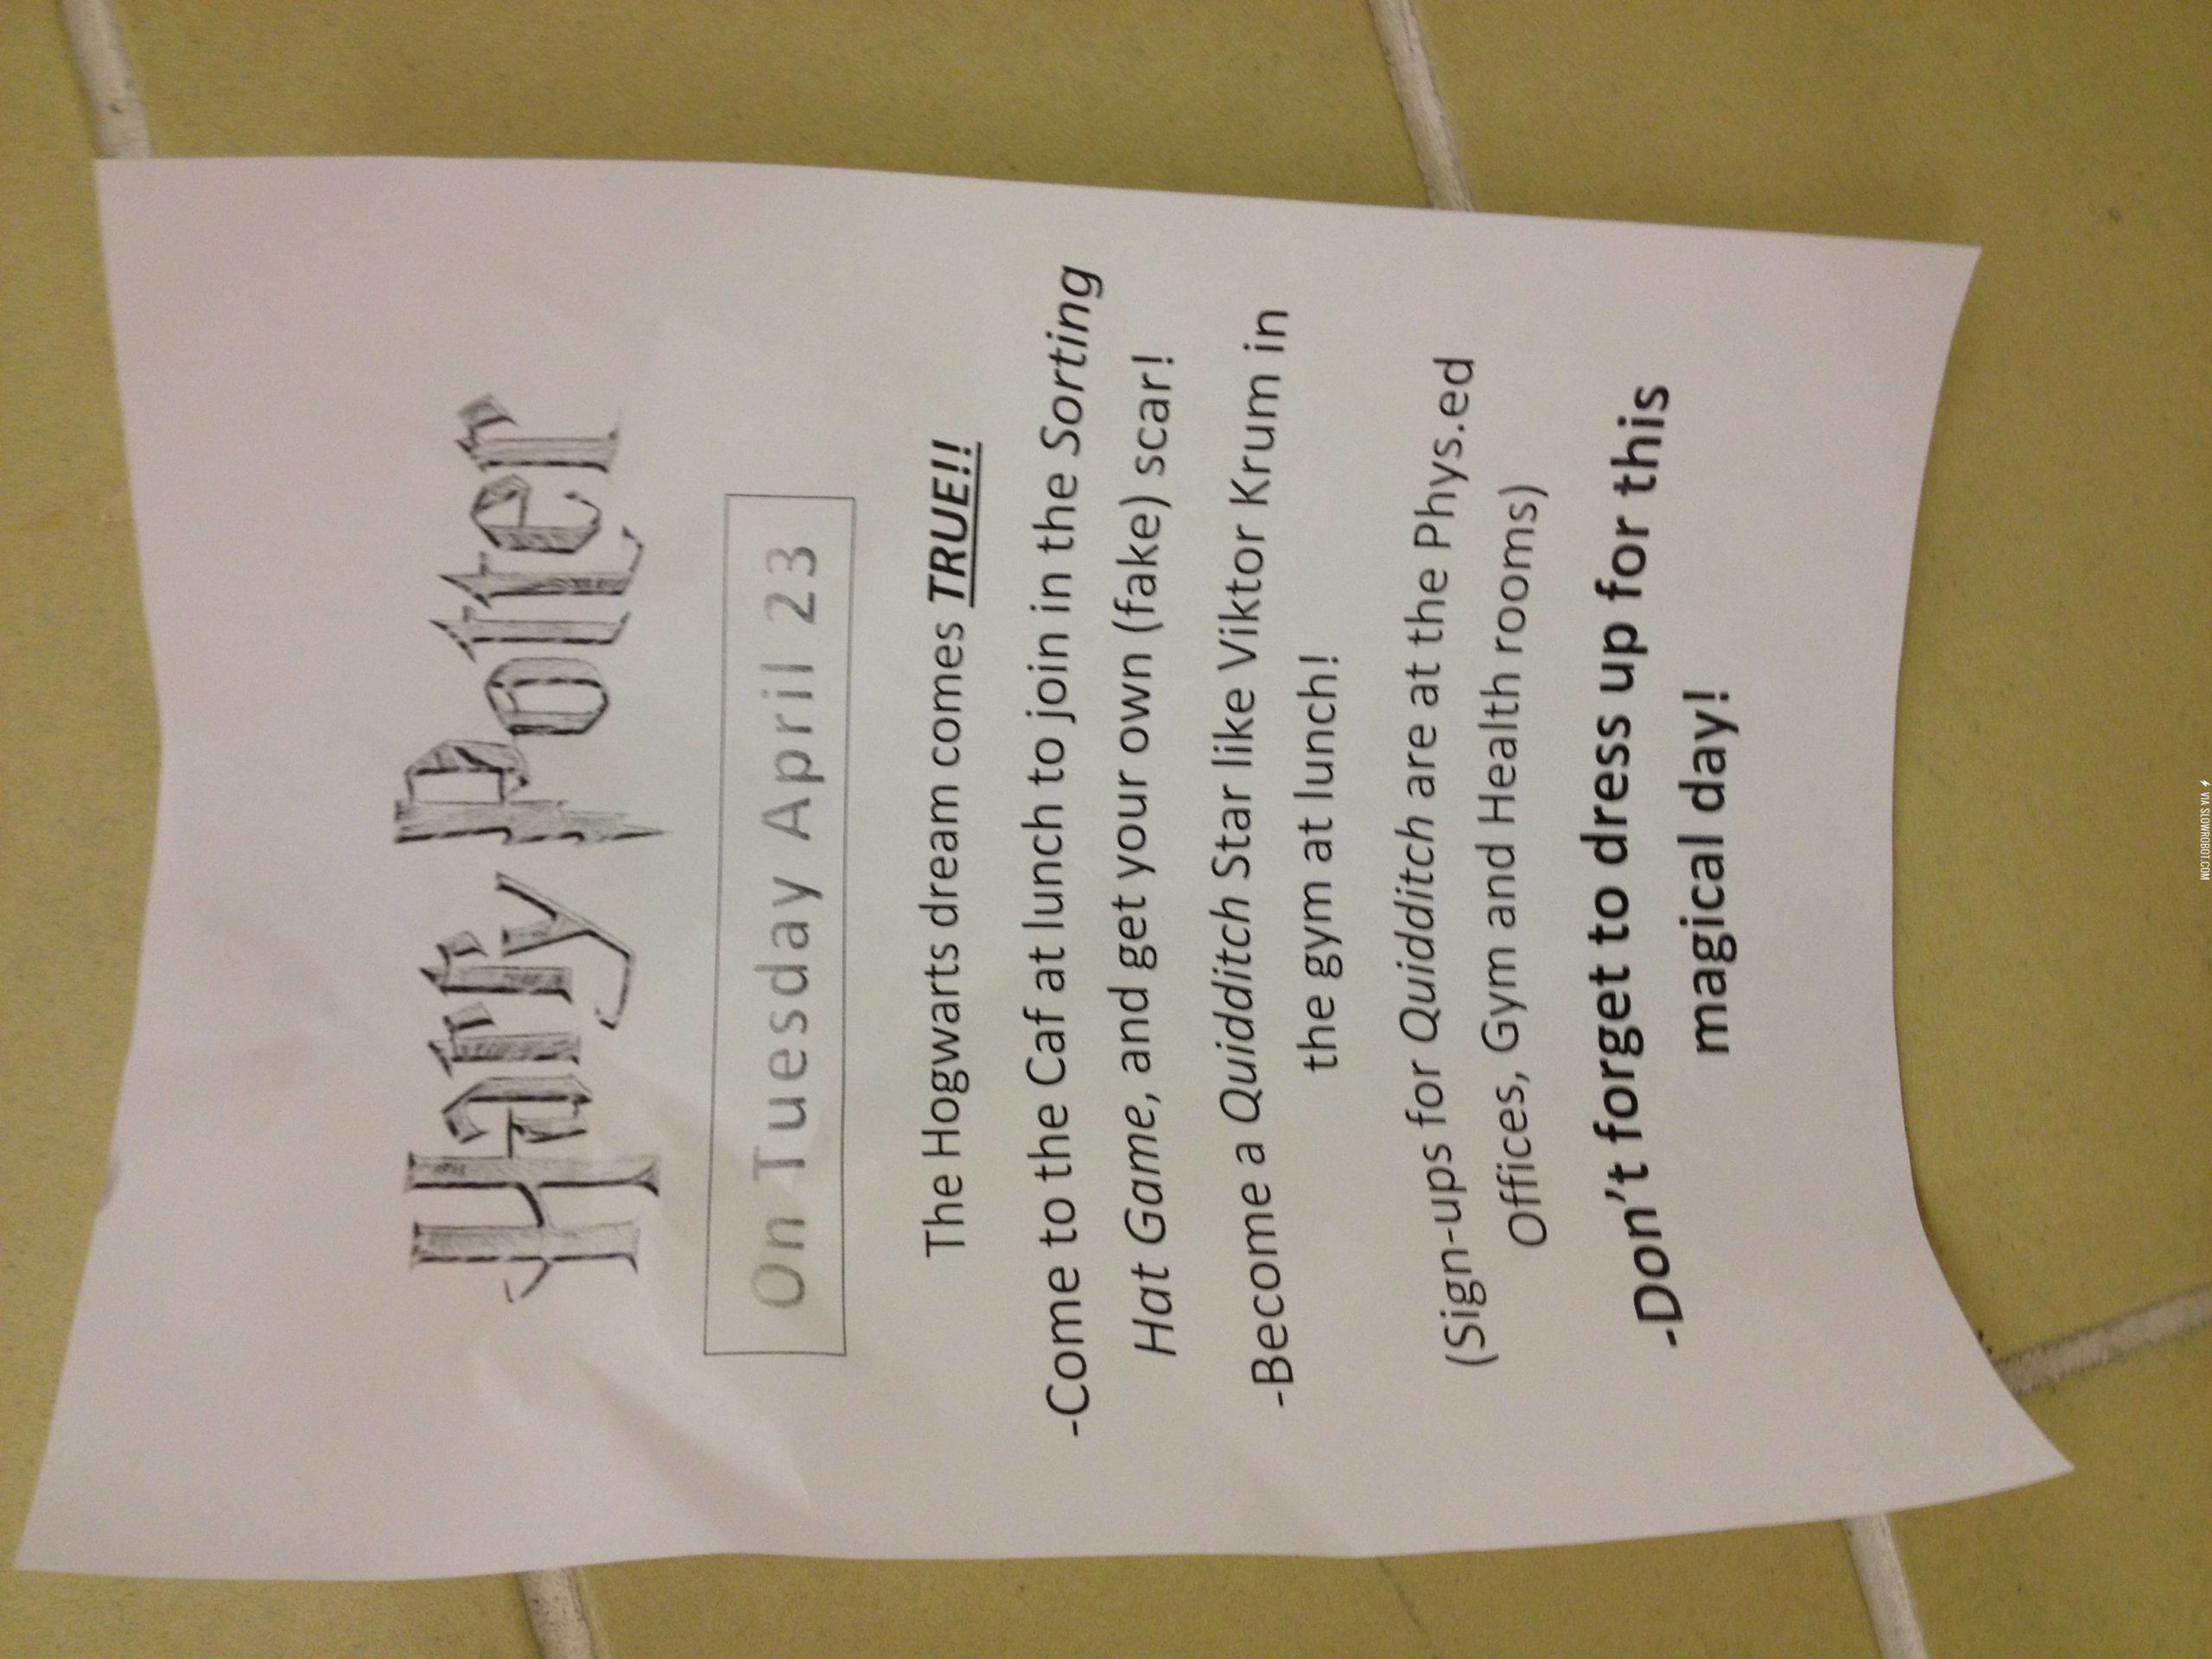 Harry Potter
On Tuesday April 23
The Hogwarts dream comes TRUE!!
-Come to the Caf at lunch to join in the Sorting
Hat Game, and get your own (fake) scar!
-Become a Quidditch Star like Viktor Krum in
the gym at lunch!
(Sign-ups for Quidditch are at the Phys.ed
Offices, Gym and Health rooms)
-Don't forget to dress up for this
magical day!
VIA SLOWROBOT.COM